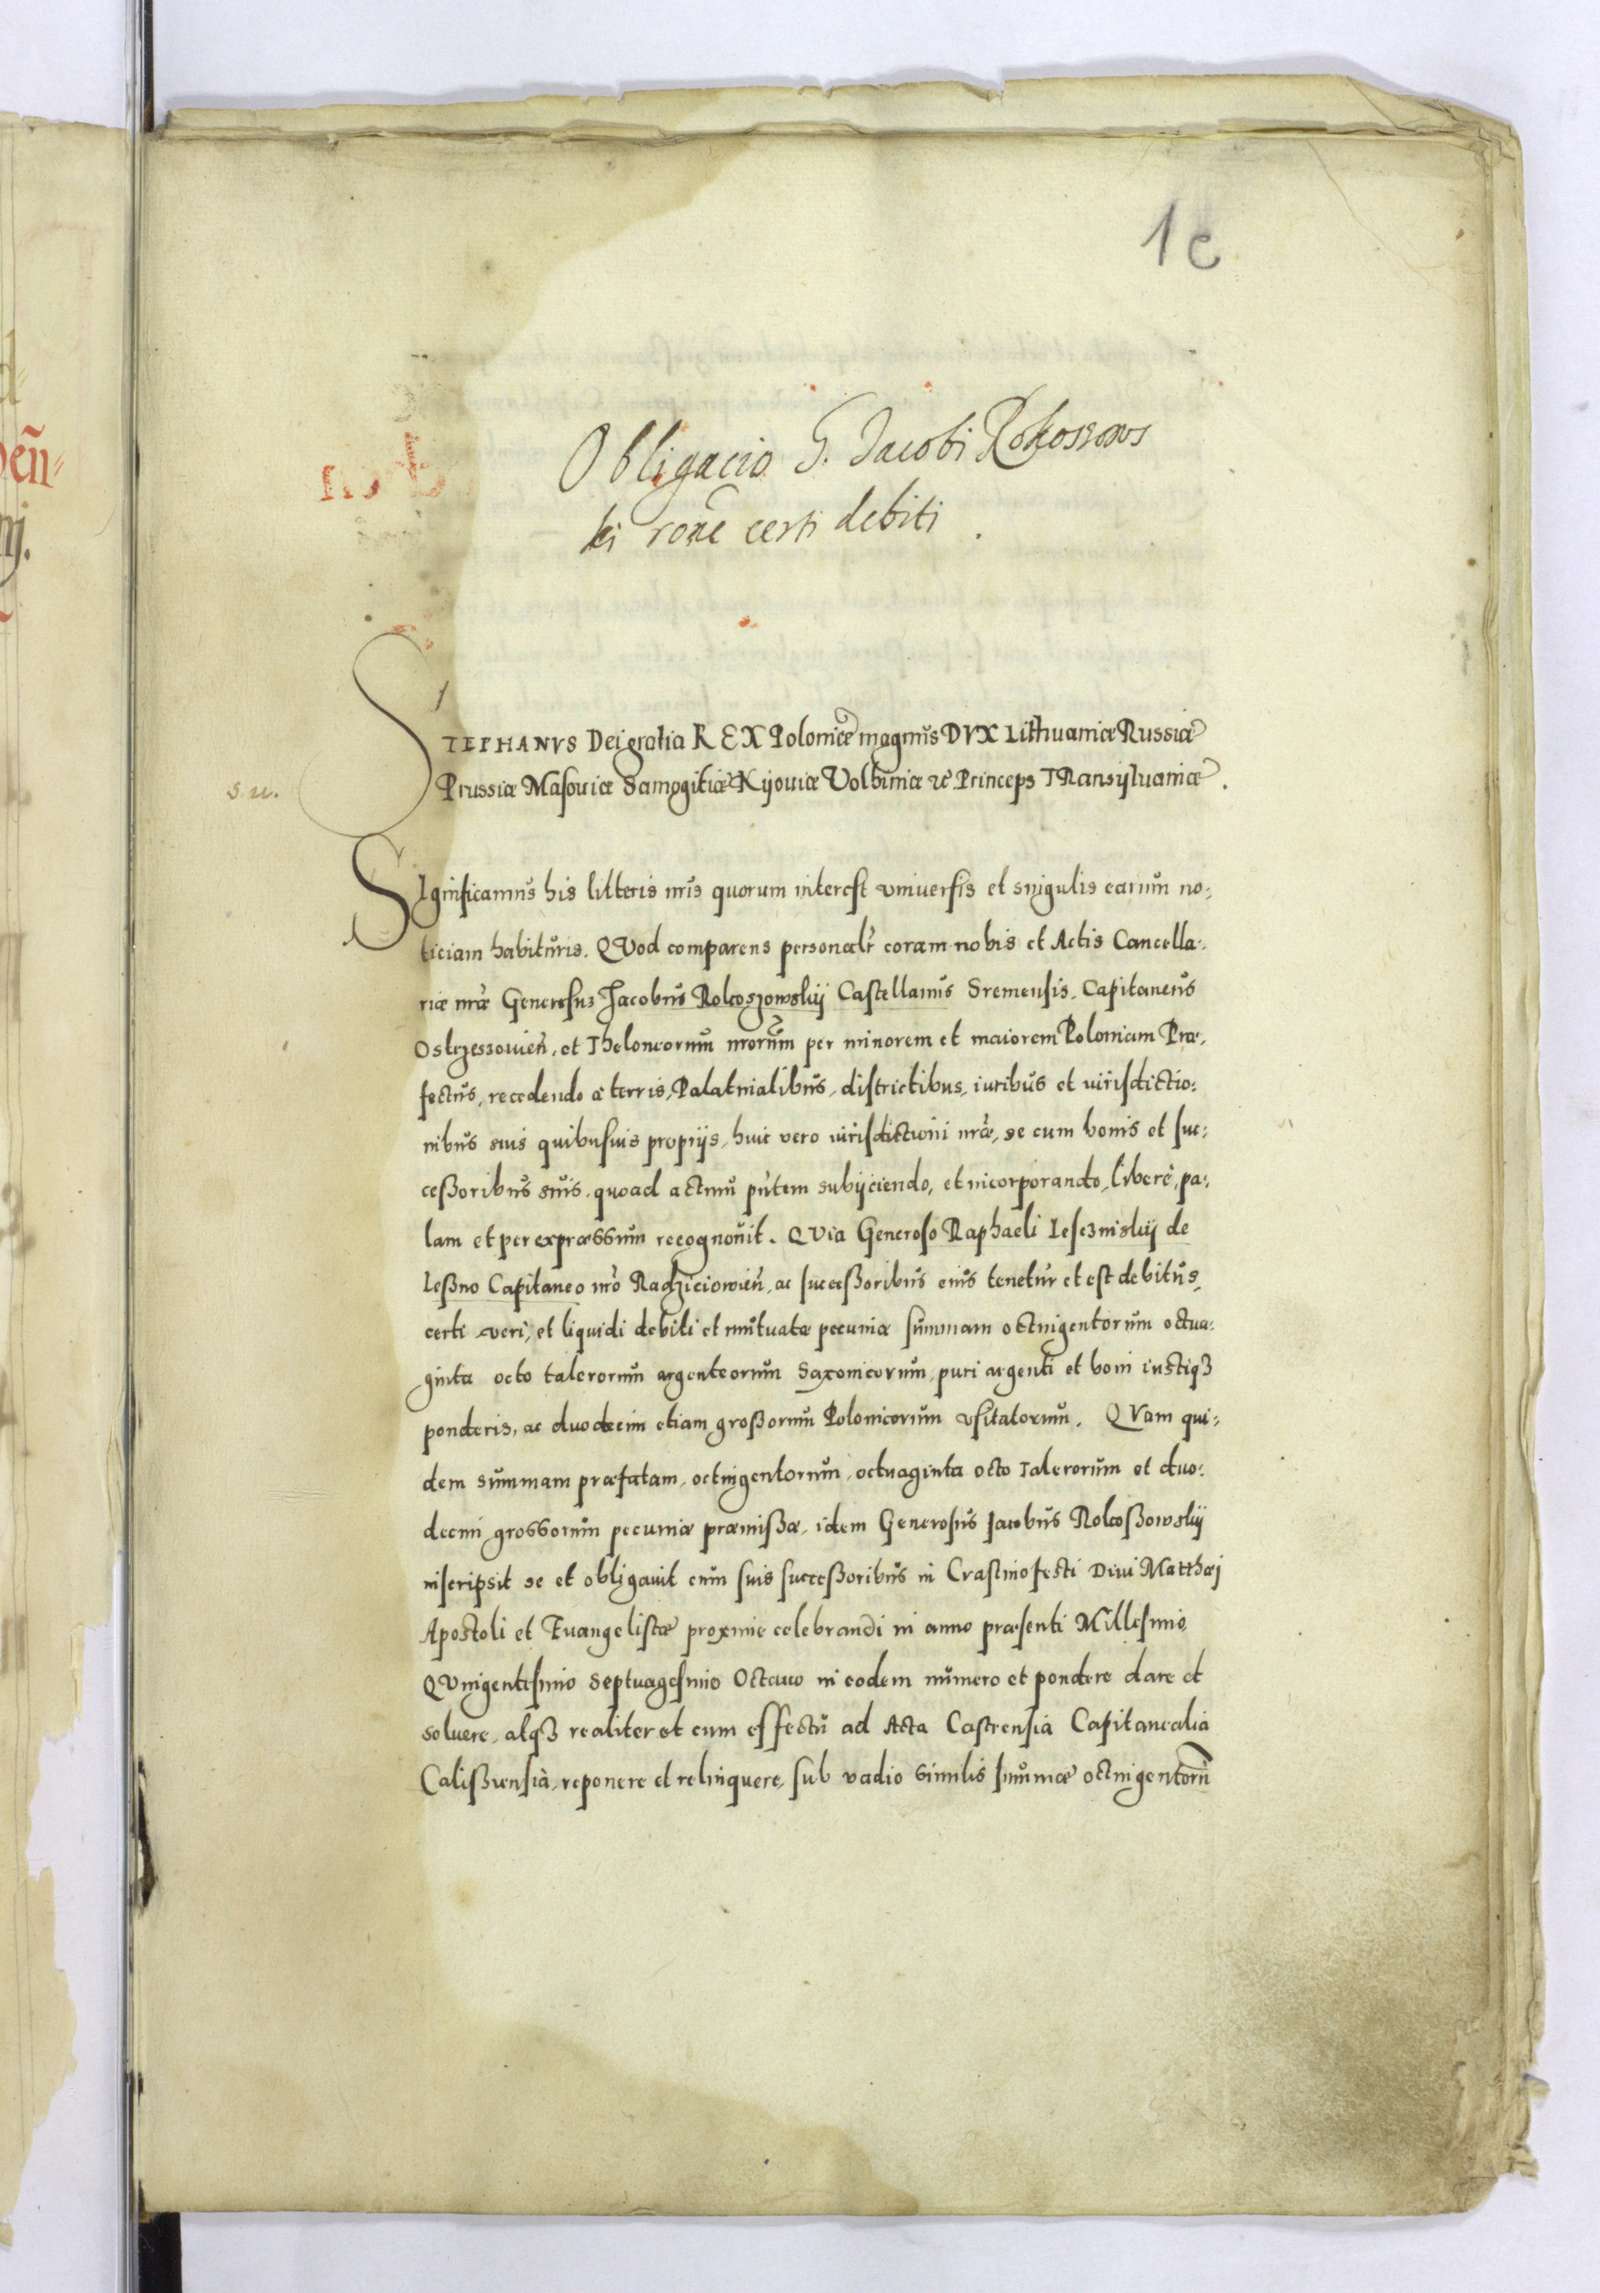 1c
Obligacio G. Jacobi Rokossows
ki rone certi debiti.
STEPHANVS Dei gratia REX Poloniæ magnus DVX Lithuaniæ Russiæ
Prussiæ Masouiæ Samogitiæ Kijouiæ Volhiniæ etc Princeps TRansijluaniæ.
s. u.
SIgnificamus his litteris nris quorum interest vniuersis et singulis earum no:
ticiam habituris. QVod comparens personalr coram nobis et Actis Cancella:
riæ nræ Generosus Jacobus Rokoszowskij Castellanus Sremensis. Capitaneus
Ostrzessouien, et Theloneorum nrorum per minorem et maiorem Poloniam Præ,
fectus, recedendo a terris, Palatinalibus, districtibus, iuribus et iurisdictio:
nibus suis quibusuis propijs, huic vero iurisdictioni nræ, se cum bonis et suc:
ceßoribus suis, quoad actum pntem subijciendo, et incorporando, liberè, pa:
lam et per expræssum recognouit. QVia Generoso Raphaeli Lesczinskij de
Leßno Capitaneo nro Radzieiowien, ac succeßoribus eius tenetur et est debitus
certi veri, et liquidi debiti et mutuatæ pecuniæ summam octingentorum octua:
ginta octo talerorum argenteorum Saxonicorum, puri argenti et boni iustiqȝ
ponderis, ac duodecim etiam großorum Polonicorum vsitatorum. QVam qui:
dem summam præfatam, octingentorum, octuaginta octo talerorum et duo:
decim grossorum pecuniæ præmißæ, idem Generosus Jacobus Rokoßowskij
inscripsit se et obligauit cum suis succeßoribus in Crastino festi Diui Matthæj
Apostoli et Euangelistæ proxime celebrandi in anno præsenti Millesimo
QVingentesimo Septuagesimo Octauo in eodem numero et pondere dare et
soluere, atqȝ realiter et cum effectu ad Acta Castrensia Capitanealia
Calißiensia, reponere et relinquere, sub vadio similis summæ octingentoru